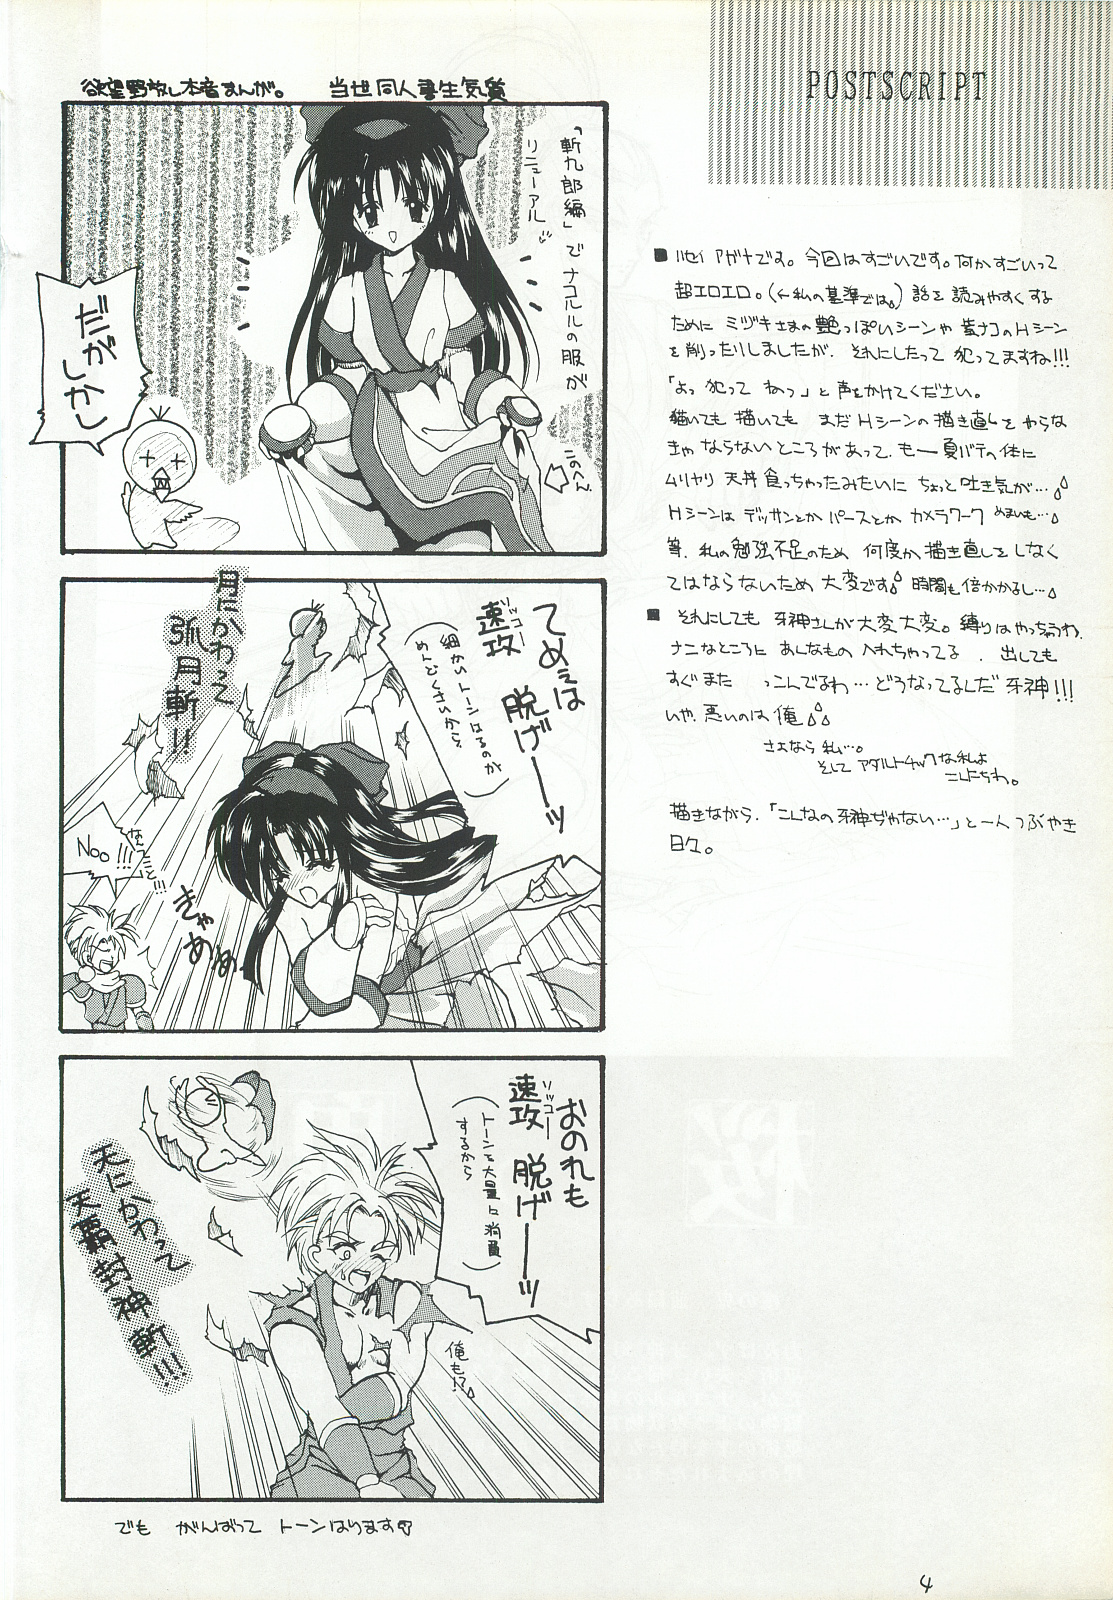 POSTSCRIPT
欲望野放し本音まんが。 当世同人書生気質
「斬九郎編」でナコルルの服が
リニューアル
だが
しかし
このへん
てめぇは
速攻 脱げーーッ
ソッコー
(細かいトーンはるのが
めんどくさいから)
月にかわって
弧月斬!!
Noo!!!
なんつーことを!!!
きゃあああ
おのれも
速攻 脱げーーッ
ソッコー
(トーンを大量に消費
するから)
天にかわって
天覇封神斬!!!
俺も!?
でも がんばって トーンはります♡
今回はすごいです。何がすごいって
超エロエロ。(←私の基準では)話を読みやすくする
ために ミヅキさまの艶っぽいシーンや
を削ったりしましたが、それにしたって 犯ってますね!!!
「よっ 犯って ねっ」と声をかけてください。
描いても 描いても まだHシーンの描き直しをやらな
きゃならないところがあって、もー夏バテの体に
ムリヤリ 天丼 食っちゃったみたいに ちょっと吐き気が…
Hシーンは デッサンとか パースとか カメラワーク めまいも…
等、私の勉強不足のため 何度か描き直しをしなく
てはならないため 大変です 時間も倍かかるし…
■ それにしても 牙神さんが大変大変。縛りはやっちゃうわ、
ナニなところに あんなもの 入れちゃってる、出しても
すぐまた っこんでるわ…どうなってるんだ牙神!!!
いや、悪いのは俺
さよなら 私…。
そして アダルトチックな私よ
こんにちわ。
描きながら、「こんなの牙神ぢゃない…」と一人つぶやき
日々。
4